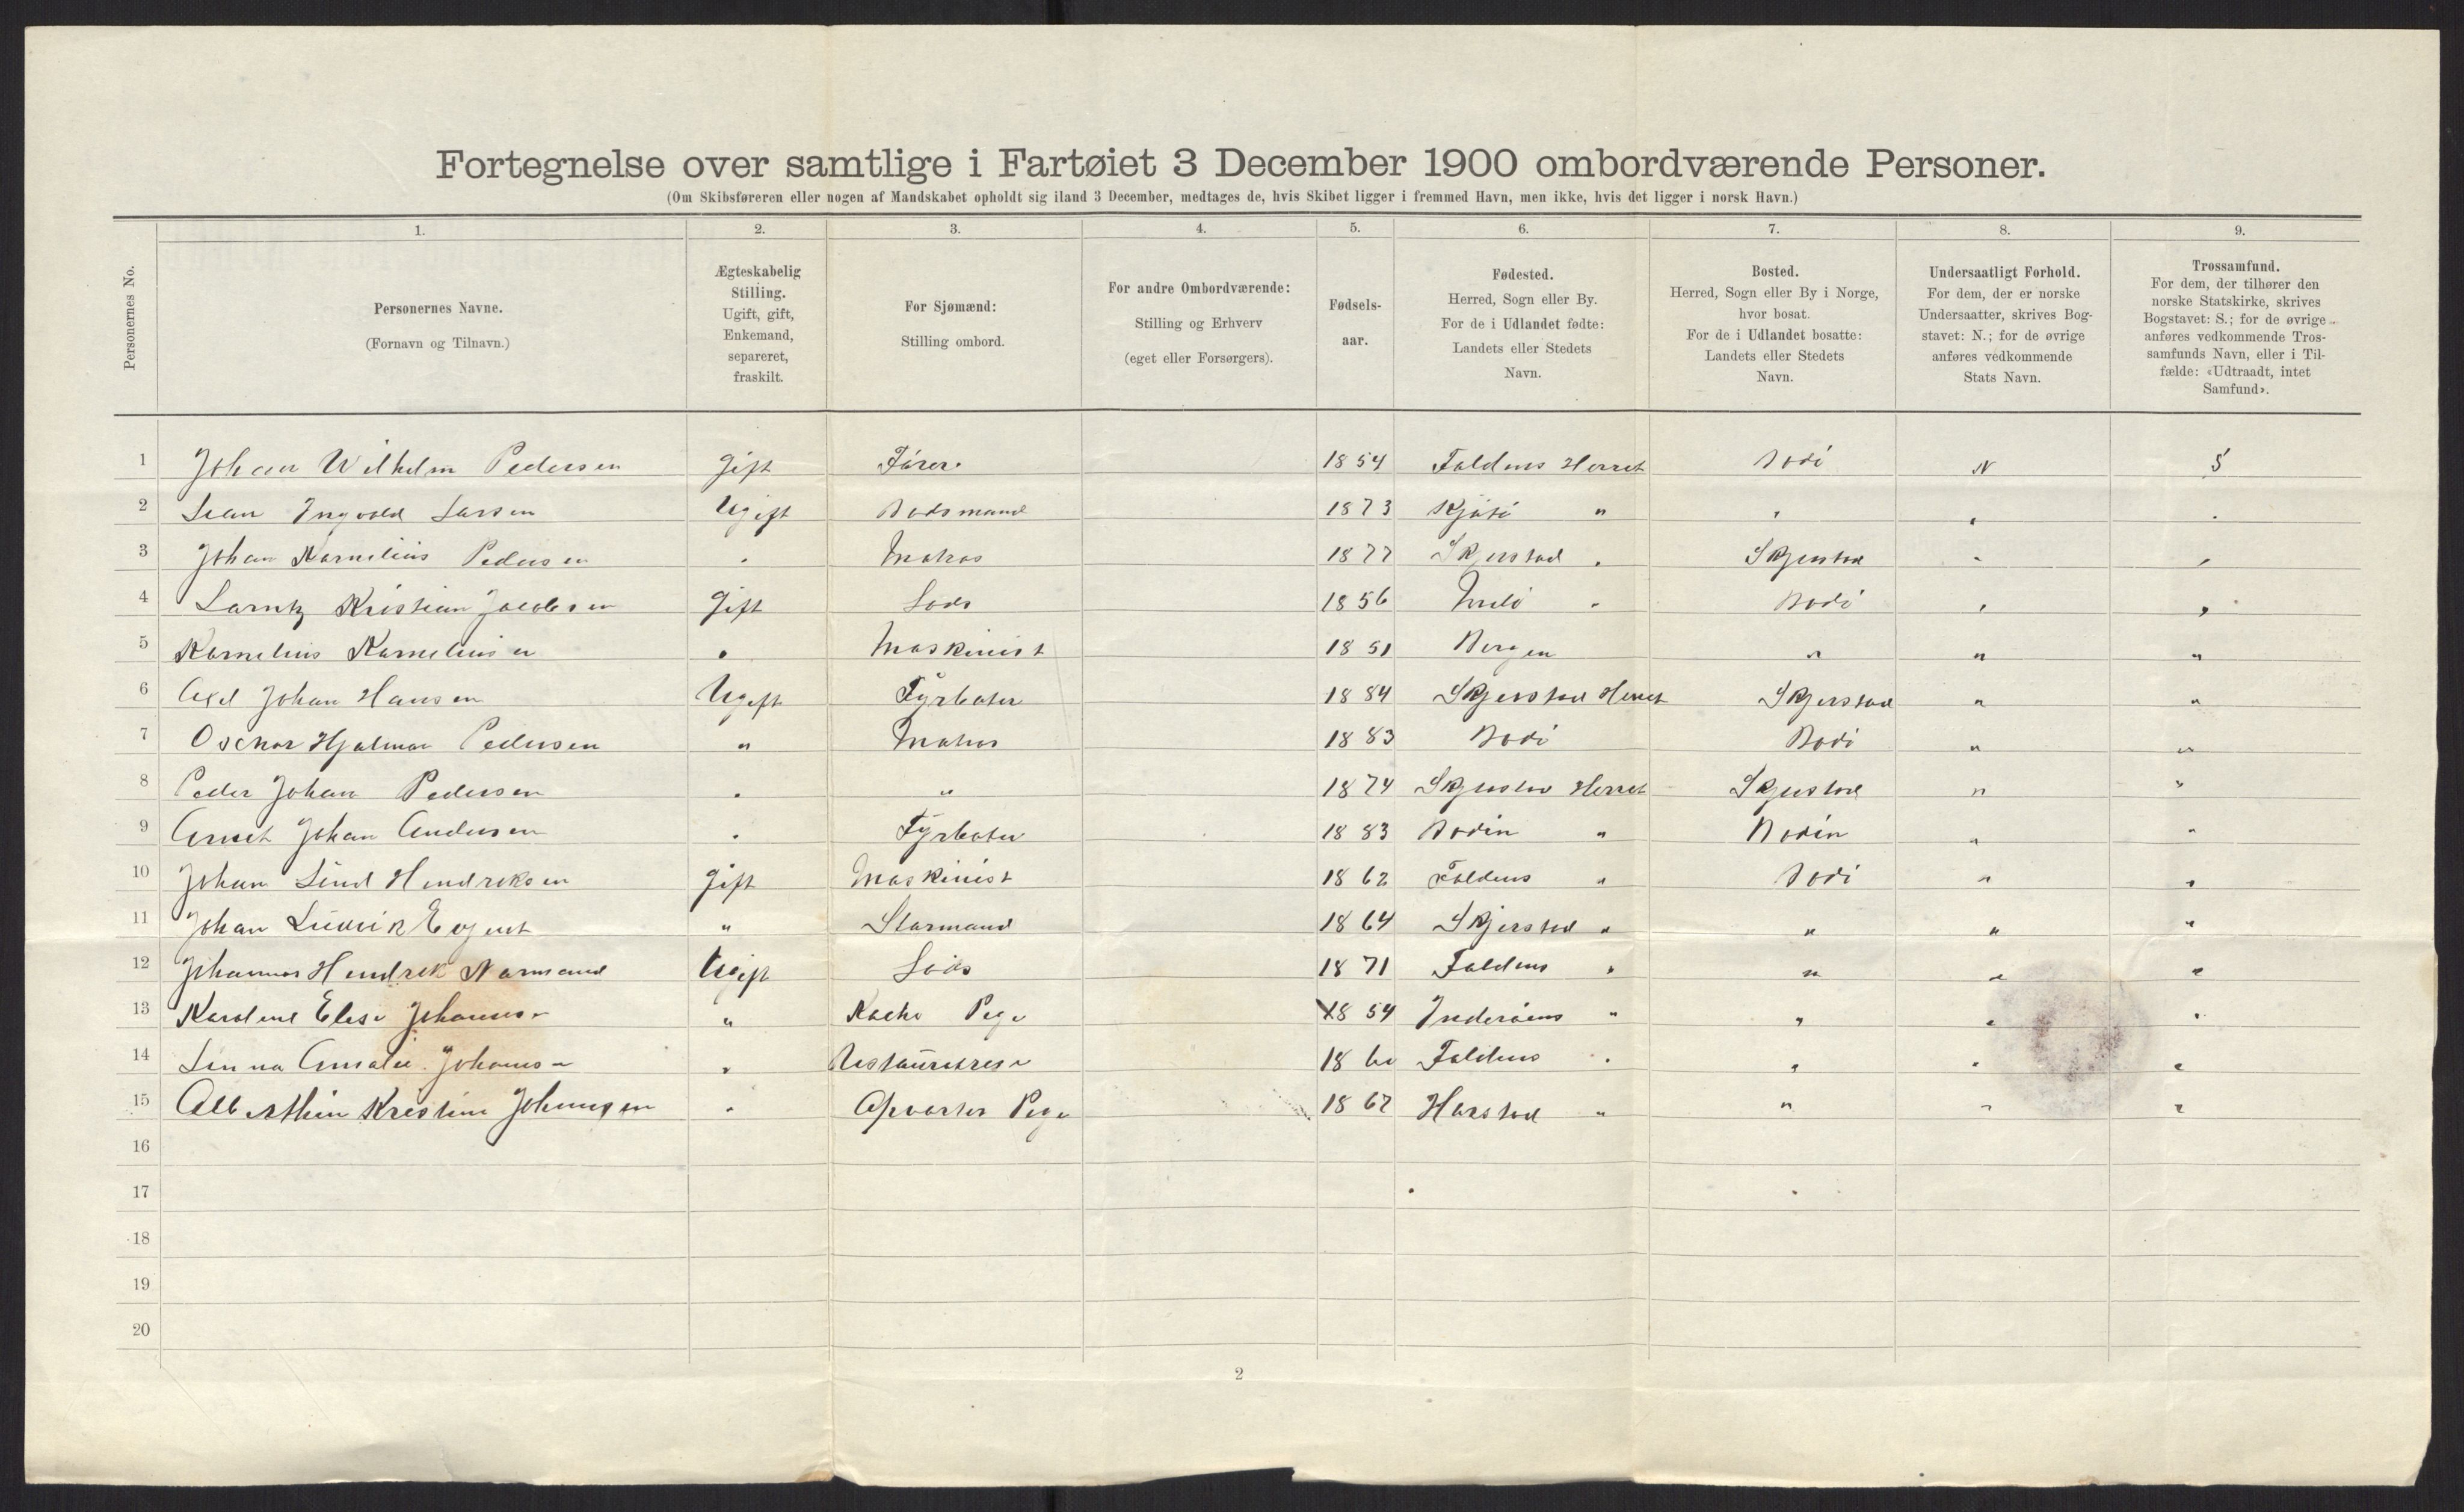 Fortegnelse over samtlige i Fartøiet 3 December 1900 ombordværende Personer.
(Om Skibsføreren eller nogen af Mandskabet opholdt sig iland 3 December, medtages de, hvis Skibet ligger i fremmed Havn, men ikke, hvis det ligger i norsk Havn.)
Personernes No.
1. 2. 3. 4. 5. 6. 7. 8. 9.
Personernes Navne.
(Fornavn og Tilnavn.)
Ægteskabelig
Stilling.
Ugift, gift,
Enkemand,
separeret,
fraskilt.
For Sjømænd:
Stilling ombord.
For andre Ombordværende:
Stilling og Erhverv
(eget eller Forsørgers).
Fødsels-
aar.
Fødested.
Herred, Sogn eller By.
For de i Udlandet fødte:
Landets eller Stedets
Navn.
Bosted.
Herred, Sogn eller By i Norge,
hvor bosat.
For de i Udlandet bosatte:
Landets eller Stedets
Navn.
Undersaatligt Forhold.
For dem, der er norske
Undersaatter, skrives Bog-
stavet: N.; for de øvrige
anføres vedkommende
Stats Navn.
Trossamfund.
For dem, der tilhører den
norske Statskirke, skrives
Bogstavet: S.; for de øvrige
anføres vedkommende Tros-
samfunds Navn, eller i Til-
fælde: «Udtraadt, intet
Samfund».
1 Johan Wilhelm Pedersen Gift Förer 1854 Foldens Herret Bodö N S
2 Ingvald Larsen Ugift Bodsmand 1873 " " " "
3 Johan Kornelius Pedersen " Matros 1877 Skjerstad " Skjerstad " "
4 Larntz Kristian Jacobsen Gift Lods 1856 " Bodö " "
5 Kornelius Korneliusen " Maskinist 1851 Bergen " " "
6 Axel Johan Hansen Ugift Fyrböter 1884 Skjerstad Herret Skjerstad " "
7 Oschar Hjalmar Pedersen " Matros 1883 Bodö Bodö " "
8 Peder Johan Pedersen " " 1874 Skjerstad Herret Skjerstad " "
9 Johan Andersen " Fyrböter 1883 Bodin " Bodin " "
10 Johan Lind Hendriksen Gift Maskinist 1862 Foldens " Bodö " "
11 Johan Ludvik " Stormand 1864 Skjerstad " " " "
12 Johannes Hendrik Normand Ugift Lods 1871 Foldens " " " "
13 Karoline Elise " Kocke Pige 1854 Inderöens " " " "
14 Amalie " 18 Foldens " " " "
15 Kristine Johnsen " Opvarter Pige 1867 Harstad " " " "
16
17
18
19
20
2